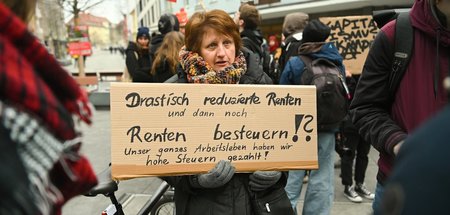 Drastisch reduzierte Renten
und dann noch
Renten besteuern!?
Unser ganzes Arbeitsleben haben wir
hohe Steuern gezahlt!
CAPITA